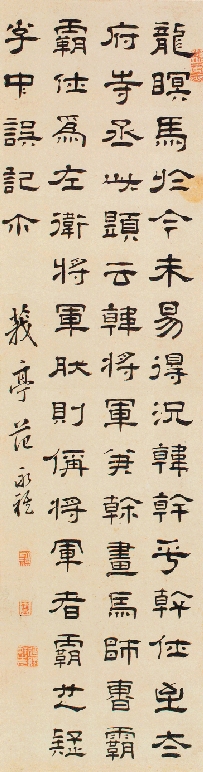 龍瞑馬於今未易得況韓幹乎幹仕至太
府寺丞此題云韓將軍弟幹畫馬師曹霸
霸仕爲左衛將軍肰則偁將軍者霸无疑
李中誤記尒
莪亭范永祺